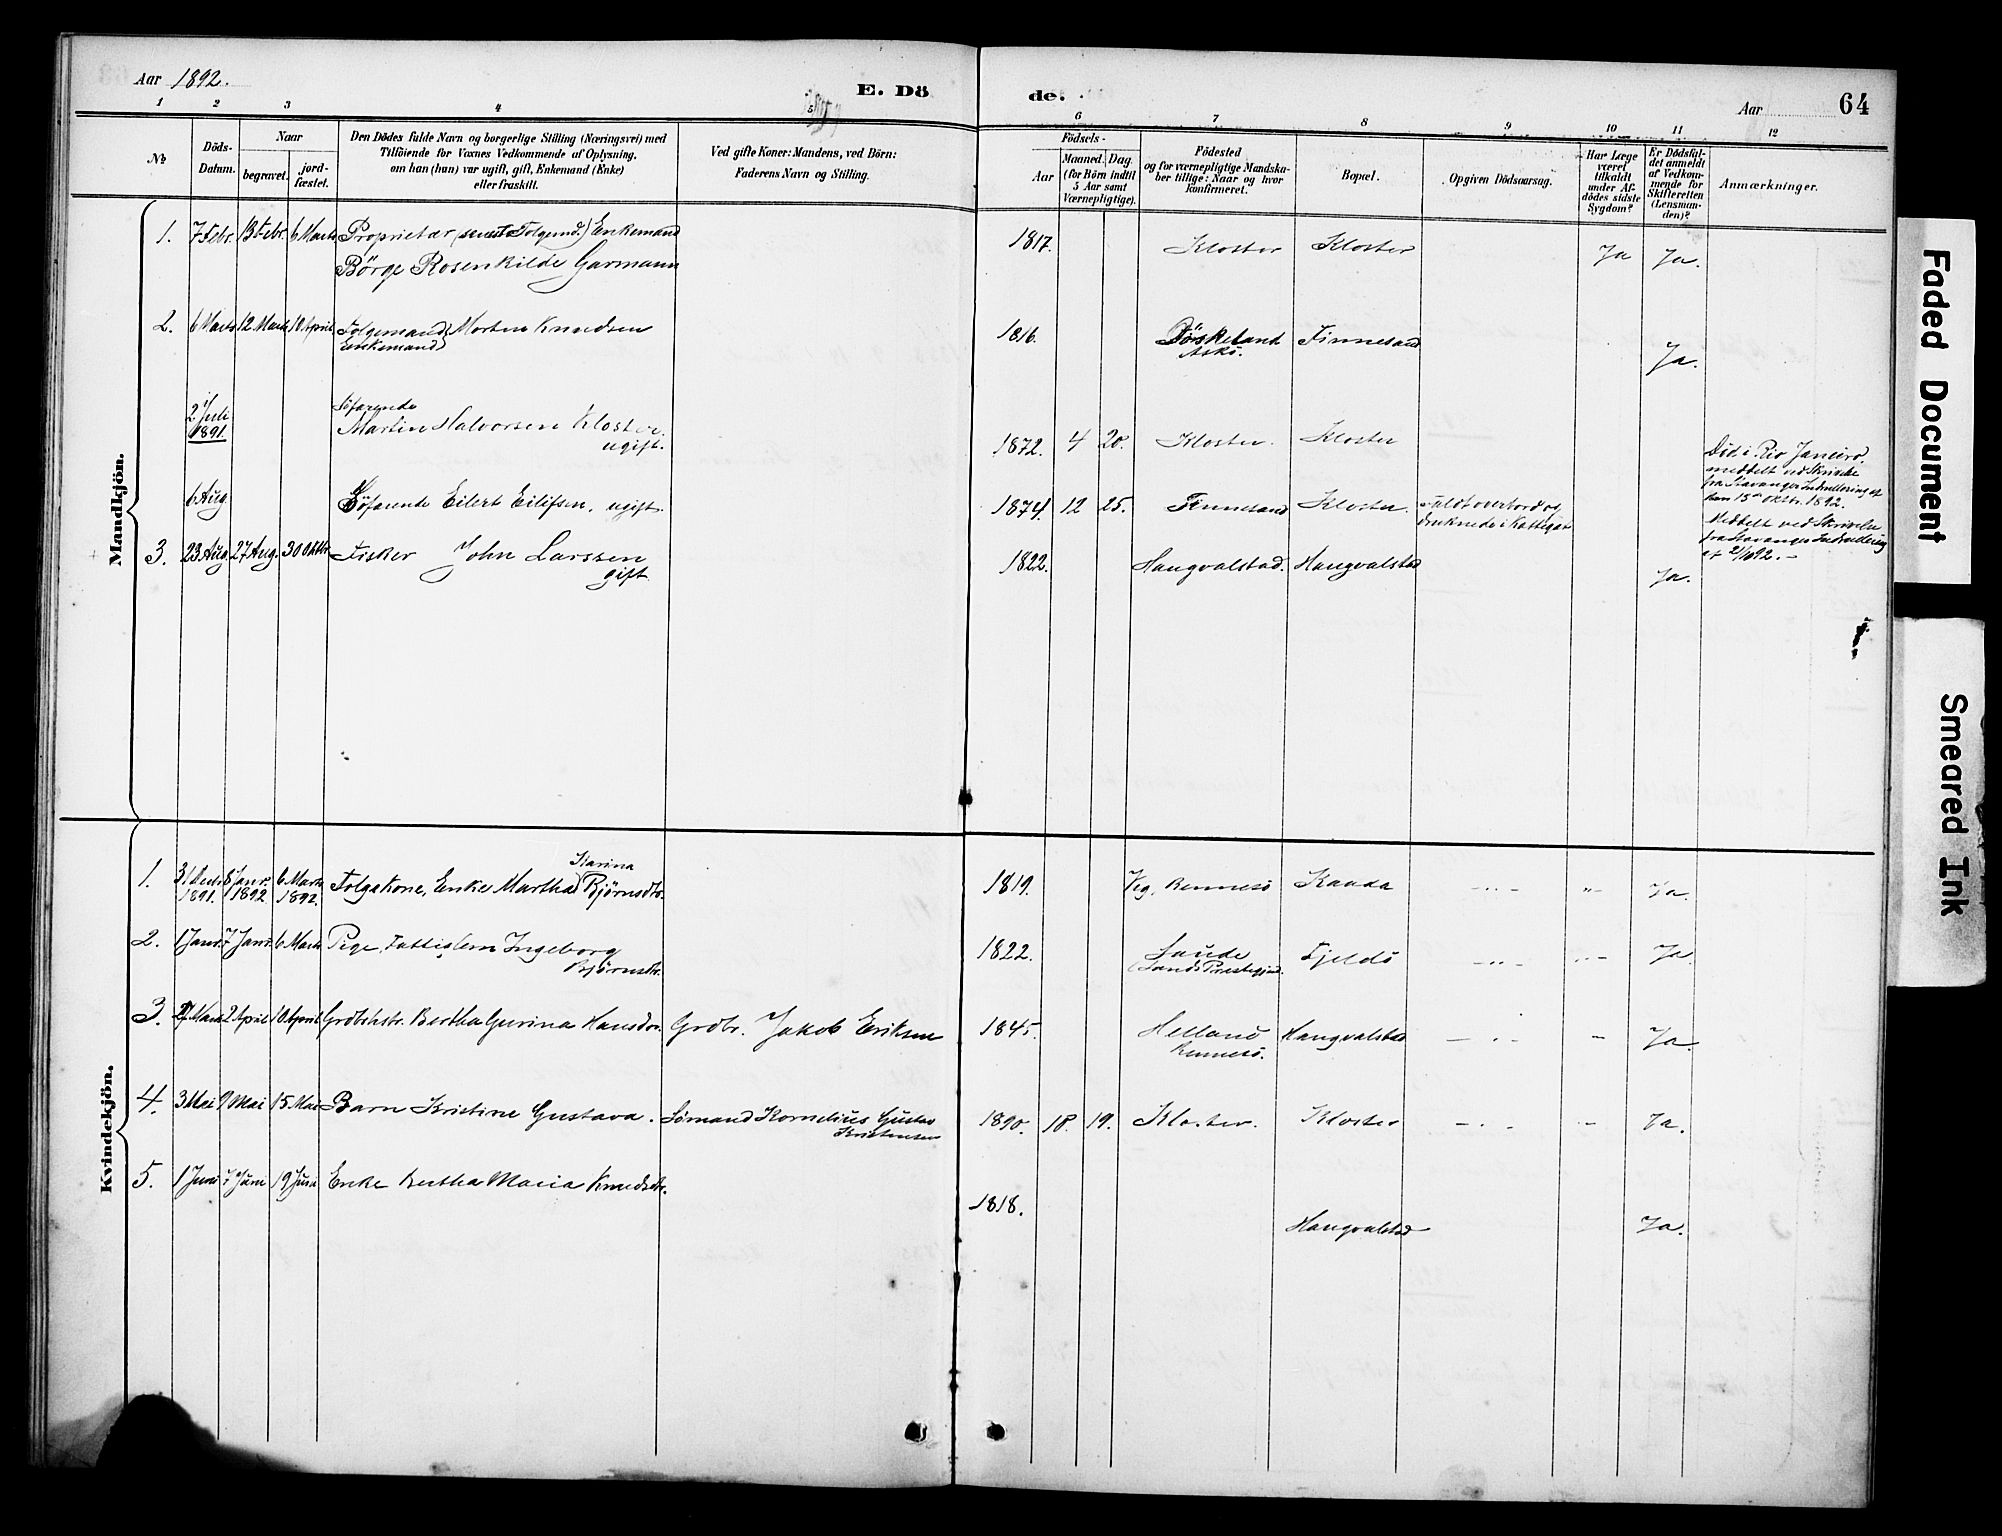 Aar 1892.
E. Dö
de.
Aar
64
1 2 3 4 5 6 7 8 9 10 11 12
№
Döds-Datum.
Naar
begravet.
jord-fæstet.
Den Dödes fulde Navn og borgerlige Stilling (Næringsvei) med
Tilföiende for Voxnes Vedkommende af Oplysning,
om han (hun) var ugift, gift, Enkemand (Enke)
eller fraskilt.
Ved gifte Koner: Mandens, ved Börn:
Faderens Navn og Stilling.
Födsels-
Aar
Maaned. Dag.
(for Börn indtil
5 Aar samt
Værnepligtige).
Födested
og for værnepligtige Mandska-
ber tillige: Naar og hvor
konfirmeret.
Bopæl.
Opgiven Dödsaarsag.
Har Læge
været
tilkaldt
under Af-
dödes sidste
Sygdom?
Er Dödsfal-
det anmeldt
af Vedkom-
mende for
Skifteretten
(Lensman-
den)?
Anmærkninger.
Mandkjön.
1. 7 Febr. 13 Febr. 6 Marts Proprietær (senest Folgemd.) Enkemand 1817. Kloster Kloster Ja Ja.
Börge Rosenkilde Garmann
2. 6 Marts 12 Marts 10 April Folgemand Morten Knudsen 1816. Dörskeland Finnesand Ja.
Enkemand Askö.
2 Juli
1891.
Söfarende
Martin Halvorsen Kloster 1872. 4 20. Kloster. Kloster
ugift.
Död i Rio Janeiro,
meddelt ved Skrivelse
fra Stavanger Indrullering af
den 15de Oktbr. 1892.
6 Aug. Söfarende Eilert Eilifsen, ugift. 1874. 12 25. Finnesand Kloster. Faldt overbord og
druknede i Kattegat
Meddelt ved Skrivelse
fra Stavanger Indrullering
3. 23 Aug. 27 Aug. 30 Oktbr. Fisker John Larssen 1822. Haugvalstad. Haugvalstad Ja.
gift
Kvindekjön.
1. 31 Decbr. 1891. 8 Janr. 1892 6 Marts 1892. Folgekone, Enke Martha Karina Bjørnsdtr. 1819. Vig, Rennesö Haada Ja.
2. 1 Janr. 7 Janr. 6 Marts Pige, Fattiglem Ingeborg 1822. Saude Fjeldö Ja.
Bjørnsdtr. (Sands Præstegjd.
3. 27 Marts 2 April 10 April Grdbrhstr. Bertha Gurina Hansdtr. Grdbr. Jakob Eriksen 1845. Helland Haugvalstad Ja.
Rennesö.
4. 3 Mai 9 Mai 15 Mai Barn Kristine Gustava. Sömand Kornelius Gustav 1890. 18. 19. Kloster. Kloster Ja.
Kristensen
5. 1 Juni 7 Juni 19 Juni Enke Bertha Maria Knudsdtr. 1818. Haugvalstad Ja.
Faded Document
Smeared Ink